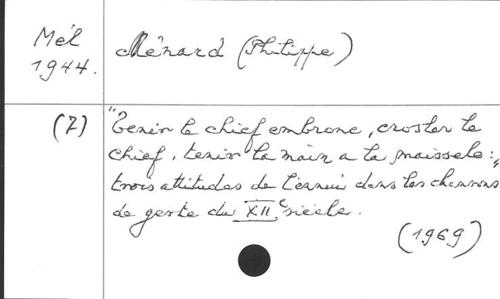 Mél
1944.
Ménard (Philippe)
(7)
"Tenir le chief embronc, croster le
chief, tenir la main a la maissele:"
trois attitudes de l'ennui dans les chansons
de geste du XIIe siècle.
(1969)